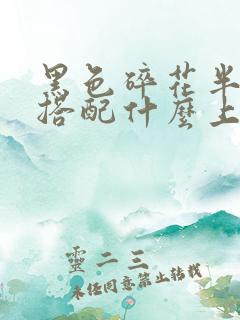 黑色碎花半
搭配什麼上
靈二三
未经同意禁止转载